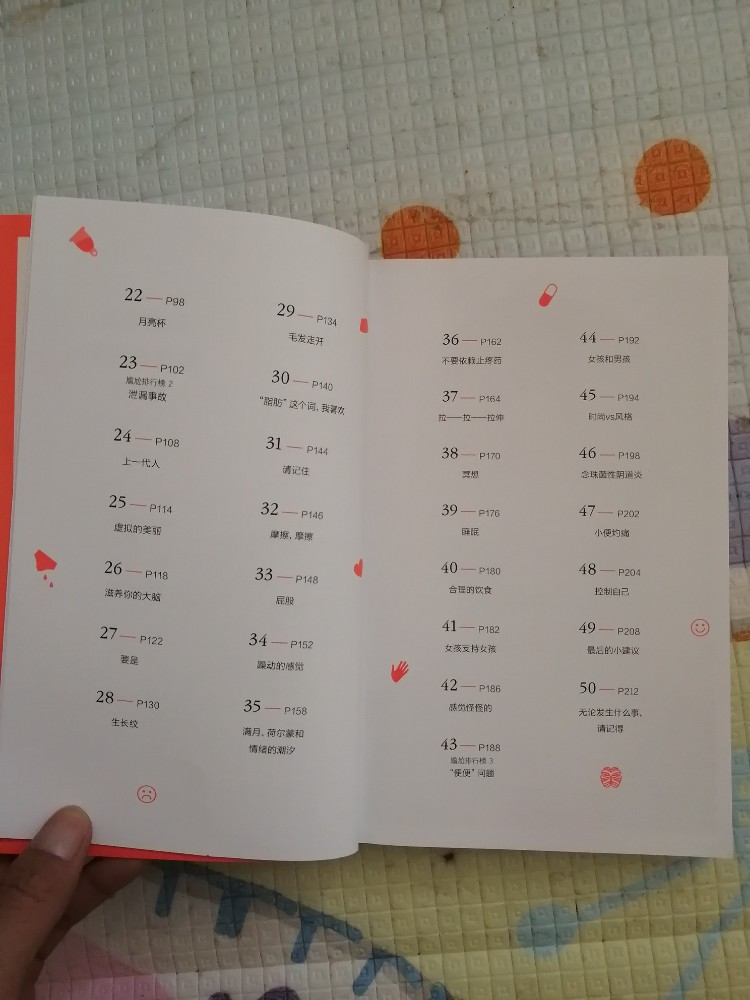 22 — P98
月亮杯
23 — P102
尴尬排行榜 2
泄漏事故
24 — P108
上一代人
25 — P114
虚拟的美丽
26 — P118
滋养你的大脑
27 — P122
要是
28 — P130
生长纹
29 — P134
毛发走开
30 — P140
“脂肪”这个词，我喜欢
31 — P144
请记住
32 — P146
摩擦，摩擦
33 — P148
屁股
34 — P152
躁动的感觉
35 — P158
满月、荷尔蒙和
情绪的潮汐
36 — P162
不要依赖止疼药
37 — P164
拉——拉——拉伸
38 — P170
冥想
39 — P176
睡眠
40 — P180
合理的饮食
41 — P182
女孩支持女孩
42 — P186
感觉怪怪的
43 — P188
尴尬排行榜 3
“便便”问题
44 — P192
女孩和男孩
45 — P194
时尚vs风格
46 — P198
念珠菌性阴道炎
47 — P202
小便灼痛
48 — P204
控制自己
49 — P208
最后的小建议
50 — P212
无论发生什么事，
请记得